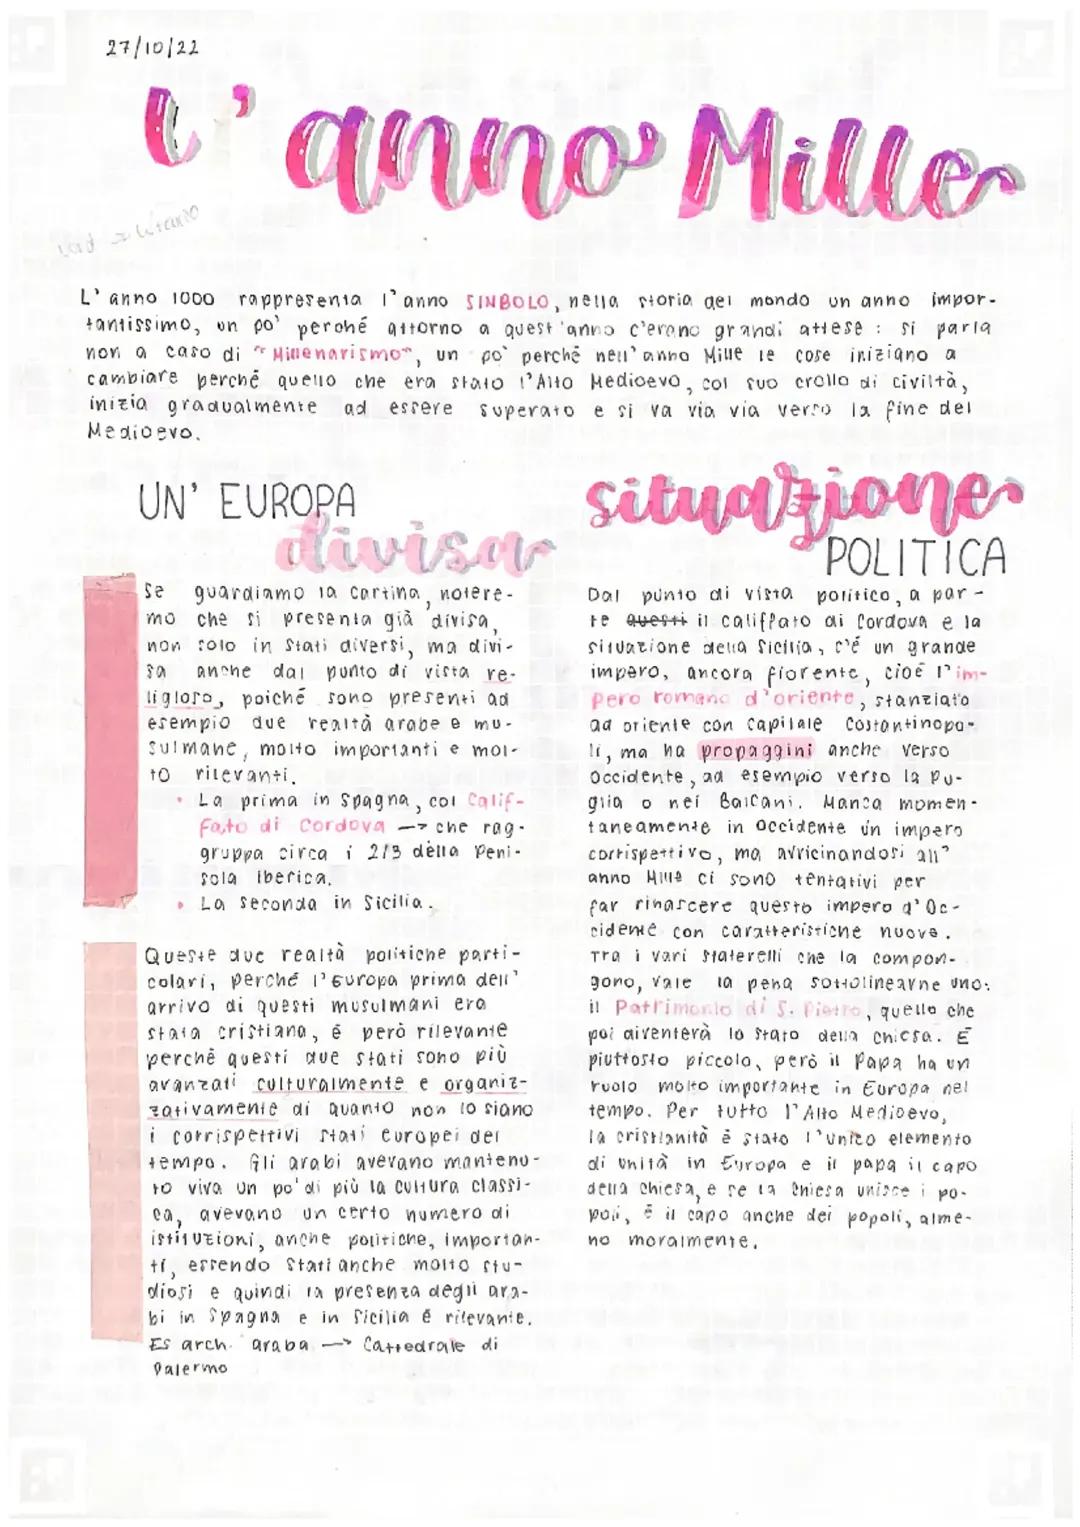 27/10/22
L'anno Mille
L'anno 1000 rappresenta l'anno SIMBOLO, nella storia del mondo un anno impor-
tantissimo, un po' perché attorno a quest'anno c'erano grandi attese : si parla
non a caso di "Millenarismo", un po' perché nell'anno Mille le cose iniziano a
cambiare perché quello che era stato l'Alto Medioevo, col suo crollo di civiltà,
inizia gradualmente ad essere superato e si va via via verso la fine del
Medioevo.
UN' EUROPA
divisa
Se guardiamo la cartina, notere-
mo che si presenta già divisa,
non solo in Stati diversi, ma divi-
sa anche dal punto di vista re-
ligioso, poiché sono presenti ad
esempio due realtà arabe e mu-
sulmane, molto importanti e mol-
to rilevanti.
• La prima in Spagna, col Calif-
fato di Cordova —> che rag-
gruppa circa i 2/3 della Peni-
sola Iberica.
• La seconda in Sicilia.
Queste due realtà politiche parti-
colari, perché l'Europa prima dell'
arrivo di questi musulmani era
stata cristiana, é però rilevante
perchè questi due stati sono più
avanzati culturalmente e organiz-
zativamente di quanto non lo siano
i corrispettivi stati europei del
tempo. Gli arabi avevano mantenu-
to viva un po' di più la cultura classi-
ca, avevano un certo numero di
istituzioni, anche politiche, importan-
ti, essendo Stati anche molto stu-
diosi e quindi la presenza degli ara-
bi in Spagna e in Sicilia é rilevante.
Es arch. araba —> Cattedrale di
Palermo
situazione
POLITICA
Dal punto di vista politico, a par-
te questi il califfato di Cordova e la
situazione della Sicilia, c'é un grande
impero, ancora fiorente, cioé l'im-
pero romano d'oriente, stanziato
ad oriente con capitale Costantinopo-
li, ma ha propaggini anche verso
Occidente, ad esempio verso la Pu-
glia o nei Balcani. Manca momen-
taneamente in Occidente un impero
corrispettivo, ma avvicinandosi all'
anno Mille ci sono tentativi per
far rinascere questo impero d'Oc-
cidente con caratteristiche nuove.
Tra i vari staterelli che la compon-
gono, vale la pena sottolinearne uno:
il Patrimonio di S. Pietro, quello che
poi diventerà lo Stato della Chiesa. É
piuttosto piccolo, però il Papa ha un
ruolo molto importante in Europa nel
tempo. Per tutto l'Alto Medioevo,
la cristianità è stato l'unico elemento
di unità in Europa e il papa il capo
della Chiesa, e se la Chiesa unisce i po-
poli, è il capo anche dei popoli, alme-
no moralmente.